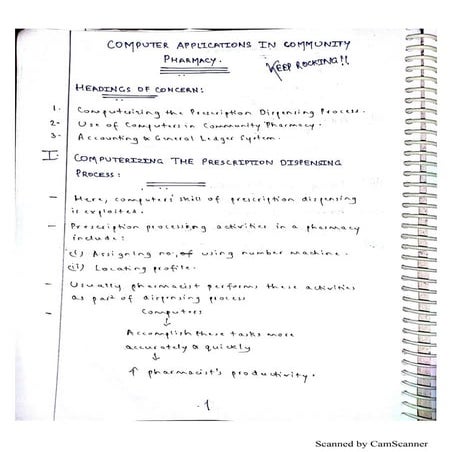 COMPUTER APPLICATIONS IN COMMUNITY
PHARMACY.
KEEP ROCKING!!
HEADINGS OF CONCERN:
1- Computerizing the Prescription Dispensing Process.
2- Use of Computers in Community Pharmacy.
3- Accounting & General Ledger System.
I: COMPUTERIZING THE PRESCRIPTION DISPENSING
PROCESS:
- Here, computers' skill of prescription dispensing
is exploited.
- Prescription processing activities in a pharmacy
include:
(i) Assigning no. of using number machine.
(ii) Locating profile.
- Usually pharmacist performs these activities
as part of dispensing process
- Computers
↓
Accomplish these tasks more
accurately & quickly
↓
↑ pharmacist's productivity.
- 1
Scanned by CamScanner